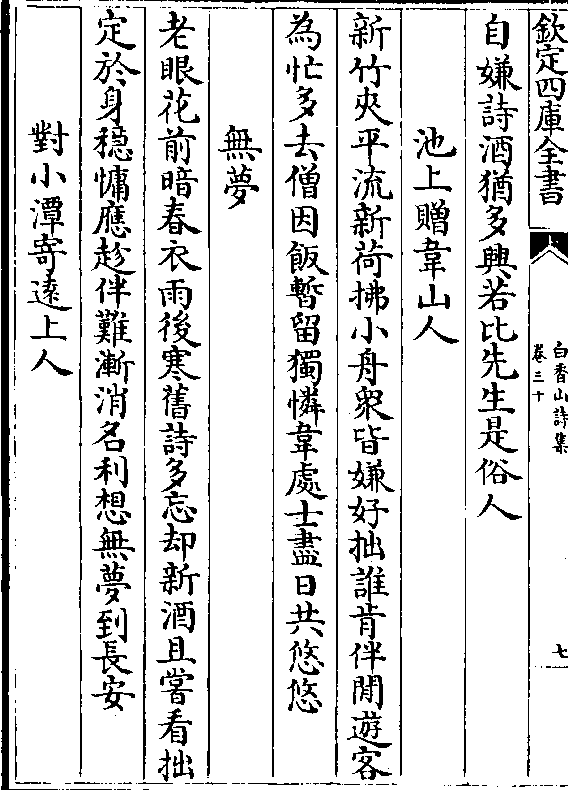 欽定四庫全書
白香山詩集
卷三十
七
自嫌詩酒猶多興若比先生是俗人
池上贈韋山人
新竹夾平流新荷拂小舟衆皆嫌好拙誰肯伴閒遊客
為忙多去僧因飯暫留獨憐韋處士盡日共悠悠
無夢
老眼花前暗春衣雨後寒舊詩多忘却新酒且嘗看拙
定於身穩慵應趁伴難漸消名利想無夢到長安
對小潭寄逺上人